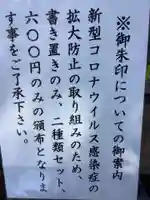 ※御朱印についての御案内
新型コロナウイルス感染症の
拡大防止の取り組みのため、
書き置きのみ、二種類セット、
六〇〇円のみの頒布となりま
す事をご了承下さい。